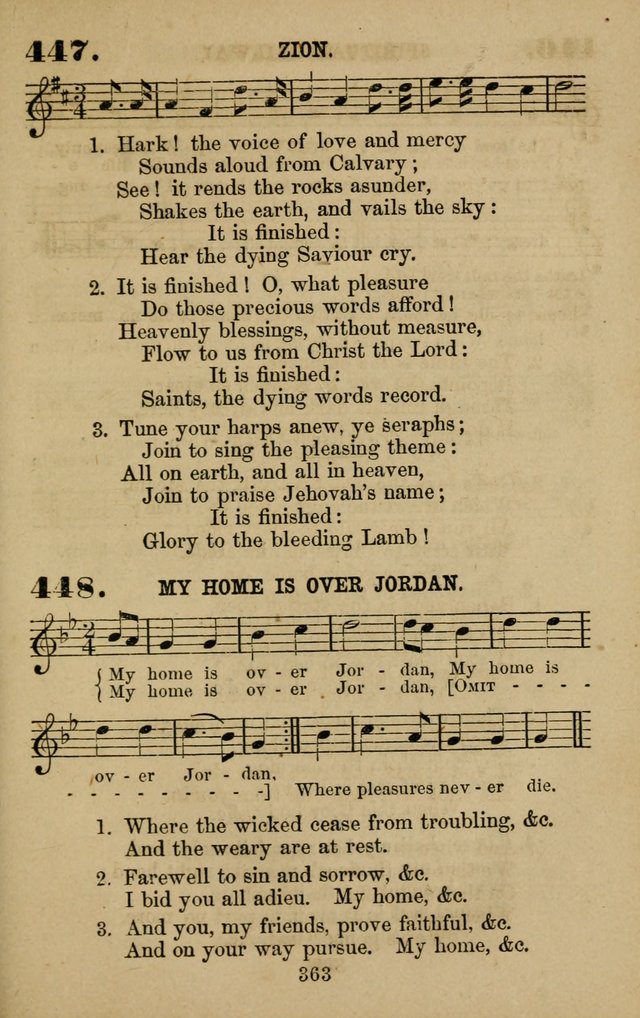 447. ZION.
1. Hark! the voice of love and mercy
Sounds aloud from Calvary;
See! it rends the rocks asunder,
Shakes the earth, and vails the sky:
It is finished:
Hear the dying Saviour cry.
2. It is finished! O, what pleasure
Do those precious words afford!
Heavenly blessings, without measure,
Flow to us from Christ the Lord:
It is finished:
Saints, the dying words record.
3. Tune your harps anew, ye seraphs;
Join to sing the pleasing theme:
All on earth, and all in heaven,
Join to praise Jehovah's name;
It is finished:
Glory to the bleeding Lamb!
448. MY HOME IS OVER JORDAN.
{ My home is ov - er Jor - dan, My home is
{ My home is ov - er Jor - dan, [OMIT - - - -
ov - er Jor - dan,
- - - - - - - -] Where pleasures nev - er die.
1. Where the wicked cease from troubling, &c.
And the weary are at rest.
2. Farewell to sin and sorrow, &c.
I bid you all adieu. My home, &c.
3. And you, my friends, prove faithful, &c.
And on your way pursue. My home, &c.
363